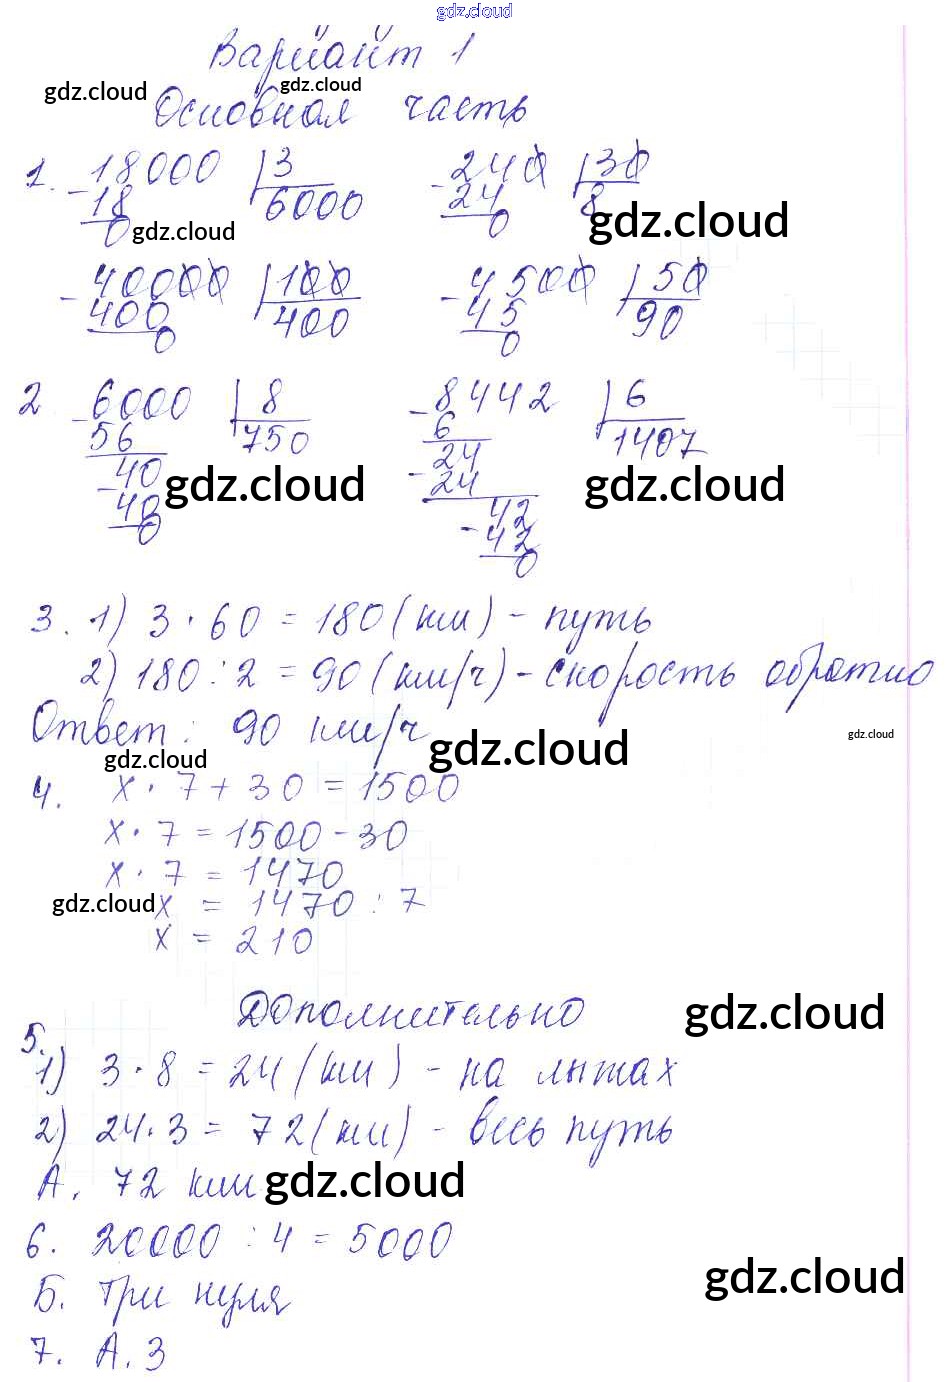 gdz.cloud
Вариант 1
gdz.cloud gdz.cloud
Основная часть
1. - 18000 | 3 - 240 | 30
18 6000 24 8
0 gdz.cloud 0 gdz.cloud
- 40000 | 100 - 4500 | 50
400 400 45 90
0 0
2 - 6000 | 8 - 8442 | 6
56 750 6 1407
- 40 - 24
40 gdz.cloud 24 gdz.cloud
0 - 42
42
0
3. 1) 3 · 60 = 180 (км) - путь
2) 180 : 2 = 90 (км/ч) - скорость обратно
Ответ: 90 км/ч
gdz.cloud gdz.cloud gdz.cloud
4. х · 7 + 30 = 1500
х · 7 = 1500 - 30
х · 7 = 1470
gdz.cloud х = 1470 : 7
х = 210
Дополнительно
gdz.cloud
5.
1) 3 · 8 = 24 (км) - на лыжах
2) 24 · 3 = 72 (км) - весь путь
А. 72 км gdz.cloud
6. 20000 : 4 = 5000
gdz.cloud
Б. Три нуля
7. А. 3